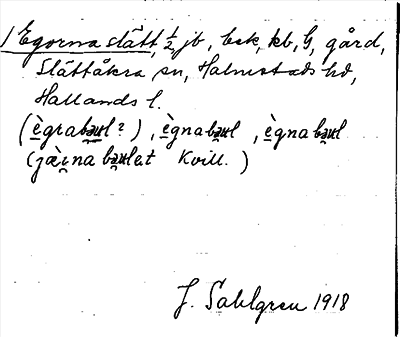 1 Egornaslätt, ½ jb, bek, kb, G, gård,
Slättåkra sn, Halmstads hd,
Hallands l.
(ègrabəul?), ègnabəul, ègnabəul
(jæ̀ɩna bəulet Kvill.)
J. Sahlgren 1918